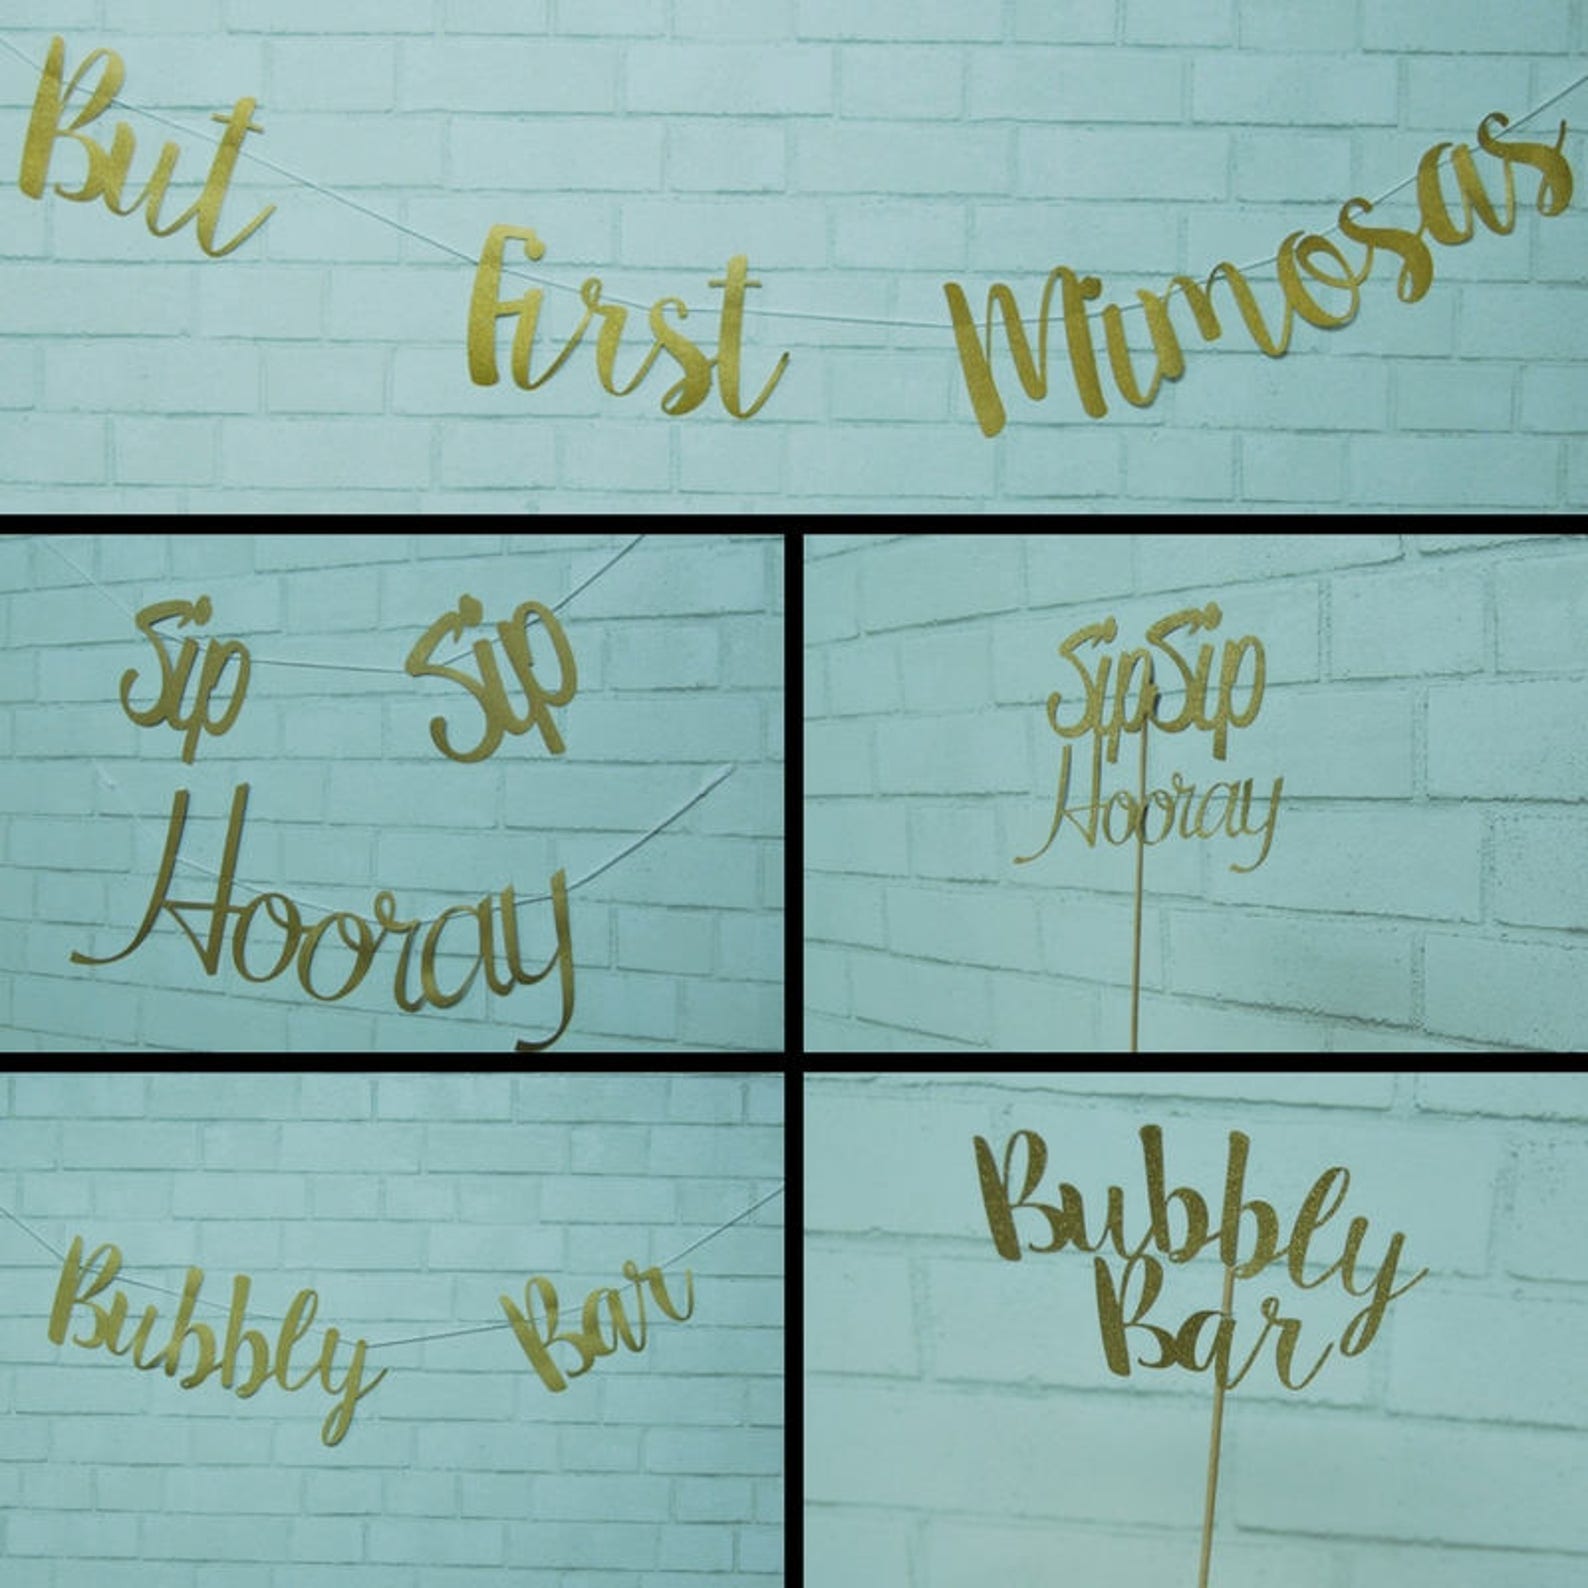 But First Mimosas
Sip Sip
Hooray
Sip Sip
Hooray
Bubbly Bar
Bubbly
Bar